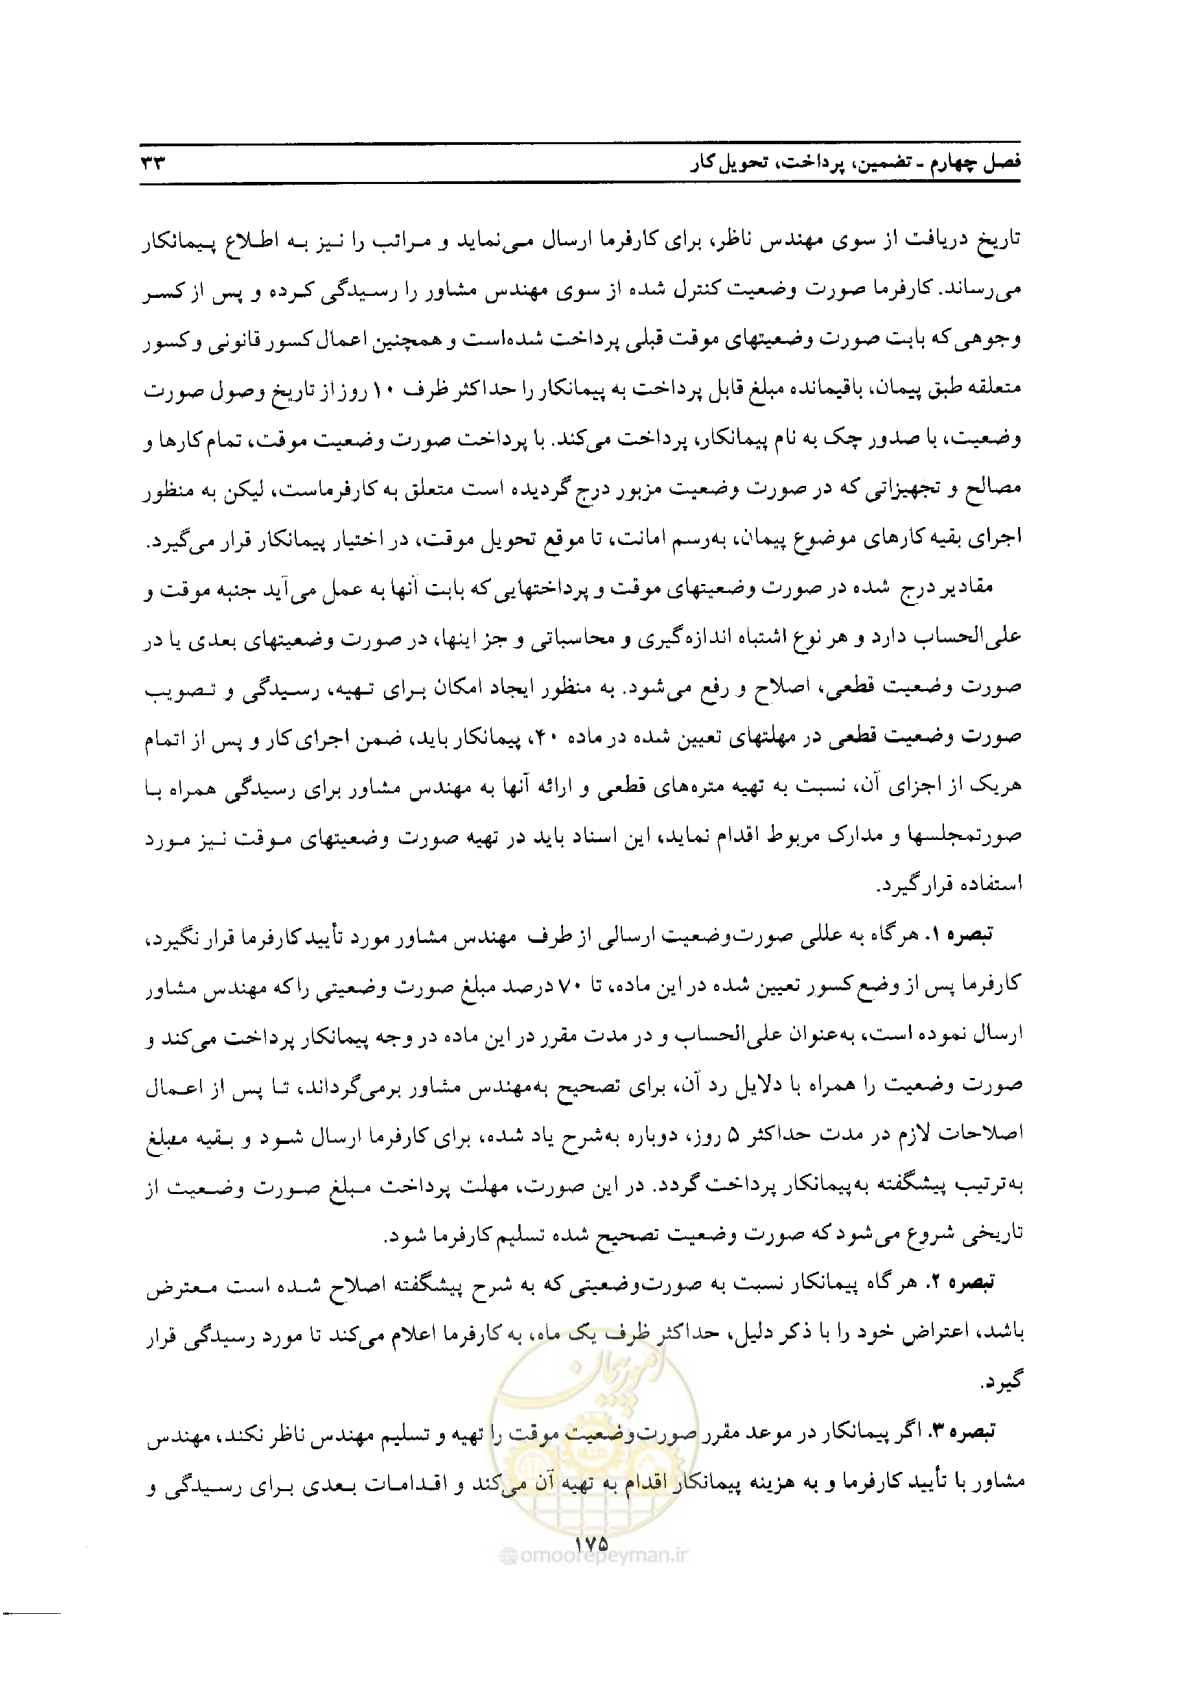 فصل چهارم ـ تضمین، پرداخت، تحویل کار ۳۳
تاریخ دریافت از سوی مهندس ناظر، برای کارفرما ارسال می‌نماید و مراتب را نیز به اطلاع پیمانکار
می‌رساند. کارفرما صورت وضعیت کنترل شده از سوی مهندس مشاور را رسیدگی کرده و پس از کسر
وجوهی که بابت صورت وضعیتهای موقت قبلی پرداخت شده‌است و همچنین اعمال کسور قانونی و کسور
متعلقه طبق پیمان، باقیمانده مبلغ قابل پرداخت به پیمانکار را حداکثر ظرف ۱۰ روز از تاریخ وصول صورت
وضعیت، با صدور چک به نام پیمانکار، پرداخت می‌کند. با پرداخت صورت وضعیت موقت، تمام کارها و
مصالح و تجهیزاتی که در صورت وضعیت مزبور درج گردیده است متعلق به کارفرماست، لیکن به منظور
اجرای بقیه کارهای موضوع پیمان، به‌رسم امانت، تا موقع تحویل موقت، در اختیار پیمانکار قرار می‌گیرد.
مقادیر درج شده در صورت وضعیتهای موقت و پرداختهایی که بابت آنها به عمل می‌آید جنبه موقت و
علی‌الحساب دارد و هر نوع اشتباه اندازه‌گیری و محاسباتی و جز اینها، در صورت وضعیتهای بعدی یا در
صورت وضعیت قطعی، اصلاح و رفع می‌شود. به منظور ایجاد امکان برای تهیه، رسیدگی و تصویب
صورت وضعیت قطعی در مهلتهای تعیین شده در ماده ۴۰، پیمانکار باید، ضمن اجرای کار و پس از اتمام
هریک از اجزای آن، نسبت به تهیه متره‌های قطعی و ارائه آنها به مهندس مشاور برای رسیدگی همراه با
صورتمجلسها و مدارک مربوط اقدام نماید، این اسناد باید در تهیه صورت وضعیتهای موقت نیز مورد
استفاده قرار گیرد.
تبصره ۱. هرگاه به عللی صورت‌وضعیت ارسالی از طرف مهندس مشاور مورد تأیید کارفرما قرار نگیرد،
کارفرما پس از وضع کسور تعیین شده در این ماده، تا ۷۰ درصد مبلغ صورت وضعیتی را که مهندس مشاور
ارسال نموده است، به‌عنوان علی‌الحساب و در مدت مقرر در این ماده در وجه پیمانکار پرداخت می‌کند و
صورت وضعیت را همراه با دلایل رد آن، برای تصحیح به‌مهندس مشاور برمی‌گرداند، تا پس از اعمال
اصلاحات لازم در مدت حداکثر ۵ روز، دوباره به‌شرح یاد شده، برای کارفرما ارسال شود و بقیه مبلغ
به‌ترتیب پیشگفته به‌پیمانکار پرداخت گردد. در این صورت، مهلت پرداخت مبلغ صورت وضعیت از
تاریخی شروع می‌شود که صورت وضعیت تصحیح شده تسلیم کارفرما شود.
تبصره ۲. هر گاه پیمانکار نسبت به صورت‌وضعیتی که به شرح پیشگفته اصلاح شده است معترض
باشد، اعتراض خود را با ذکر دلیل، حداکثر ظرف یک ماه، به کارفرما اعلام می‌کند تا مورد رسیدگی قرار
گیرد.
تبصره ۳. اگر پیمانکار در موعد مقرر صورت‌وضعیت موقت را تهیه و تسلیم مهندس ناظر نکند، مهندس
مشاور با تأیید کارفرما و به هزینه پیمانکار اقدام به تهیه آن می‌کند و اقدامات بعدی برای رسیدگی و
امور پیمان
۱۷۵
@omoorepeyman.ir